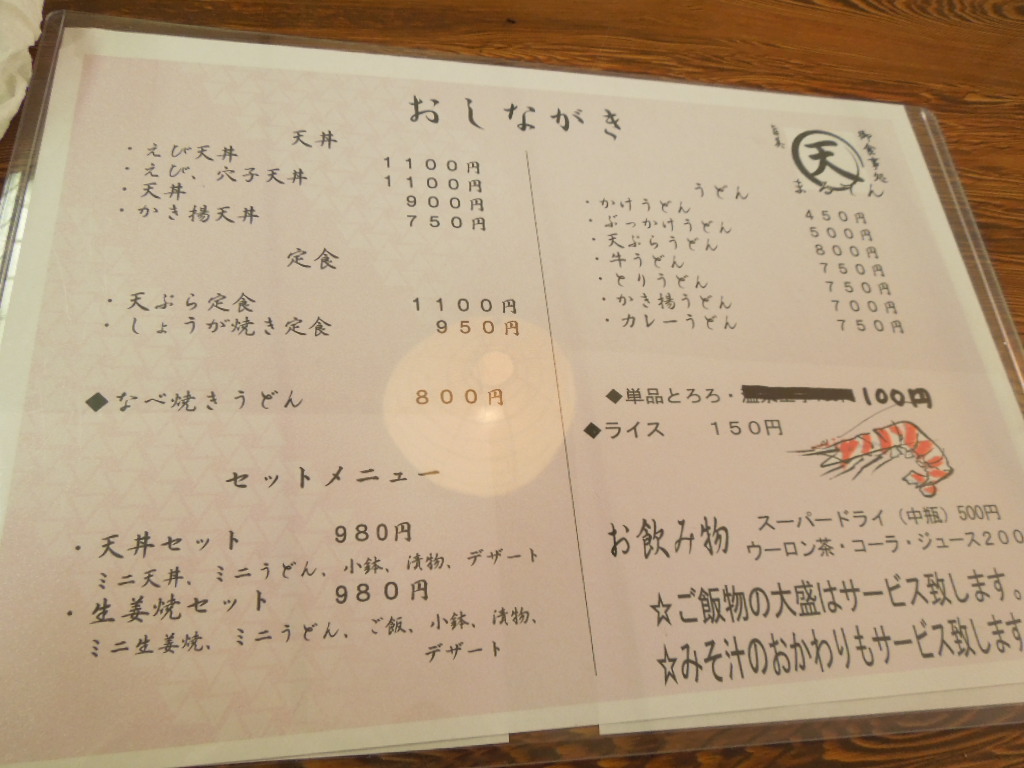 おしながき
天丼
・えび天丼 1100円
・えび、穴子天丼 1100円
・天丼 900円
・かき揚天丼 750円
定食
・天ぷら定食 1100円
・しょうが焼き定食 950円
◆なべ焼きうどん 800円
セットメニュー
・天丼セット 980円
ミニ天丼、ミニうどん、小鉢、漬物、デザート
・生姜焼セット 980円
ミニ生姜焼、ミニうどん、ご飯、小鉢、漬物、
デザート
御食事処
天
まるてん
うどん
・かけうどん 450円
・ぶっかけうどん 500円
・天ぷらうどん 800円
・牛うどん 750円
・とりうどん 750円
・かき揚うどん 700円
・カレーうどん 750円
◆単品とろろ・ 100円
◆ライス 150円
お飲み物
スーパードライ（中瓶）500円
ウーロン茶・コーラ・ジュース200
☆ご飯物の大盛はサービス致します。
☆みそ汁のおかわりもサービス致します